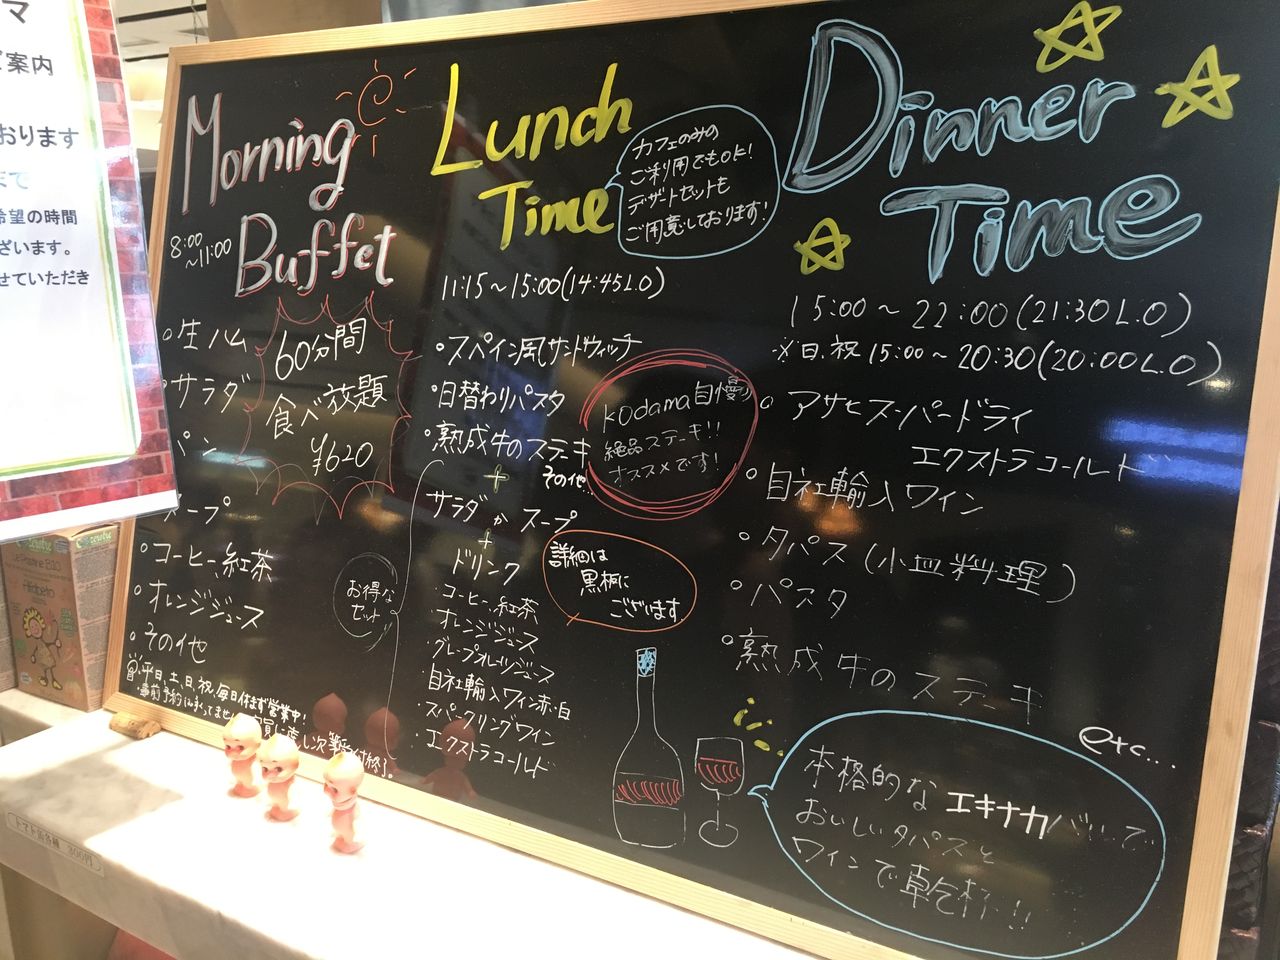 マ
ご案内
おります
希望の時間
ざいます。
せていただき
Morning
Buffet
8:00
～11:00
60分間
食べ放題
¥620
。生ハム
サラダ
パン
スープ
・コーヒー、紅茶
・オレンジジュース
・その他
平日、土、日、祝、毎日休まず営業中!
Lunch
Time
カフェのみの
ご利用でもOK!
デザートセットも
ご用意しております!
11:15～15:00(14:45L.O)
・スペイン風サンドウィッチ
・日替わりパスタ
・熟成牛のステーキ
その他...
+
サラダかスープ
+
ドリンク
お得な
セット
コーヒー、紅茶
オレンジジュース
グレープフルーツジュース
自社輸入ワイン赤・白
スパークリングワイン
エクストラコールド
kodama自慢の
絶品ステーキ!!
オススメです!
詳細は
黒板に
ございます
Dinner
Time
15:00～22:00(21:30L.O)
※日、祝15:00～20:30(20:00L.O)
。アサヒスーパードライ
エクストラコールド
・自社輸入ワイン
・タパス(小皿料理)
・パスタ
・熟成牛のステーキ
etc....
本格的なエキナカバルで
おいしいタパスと
ワインで乾杯!!